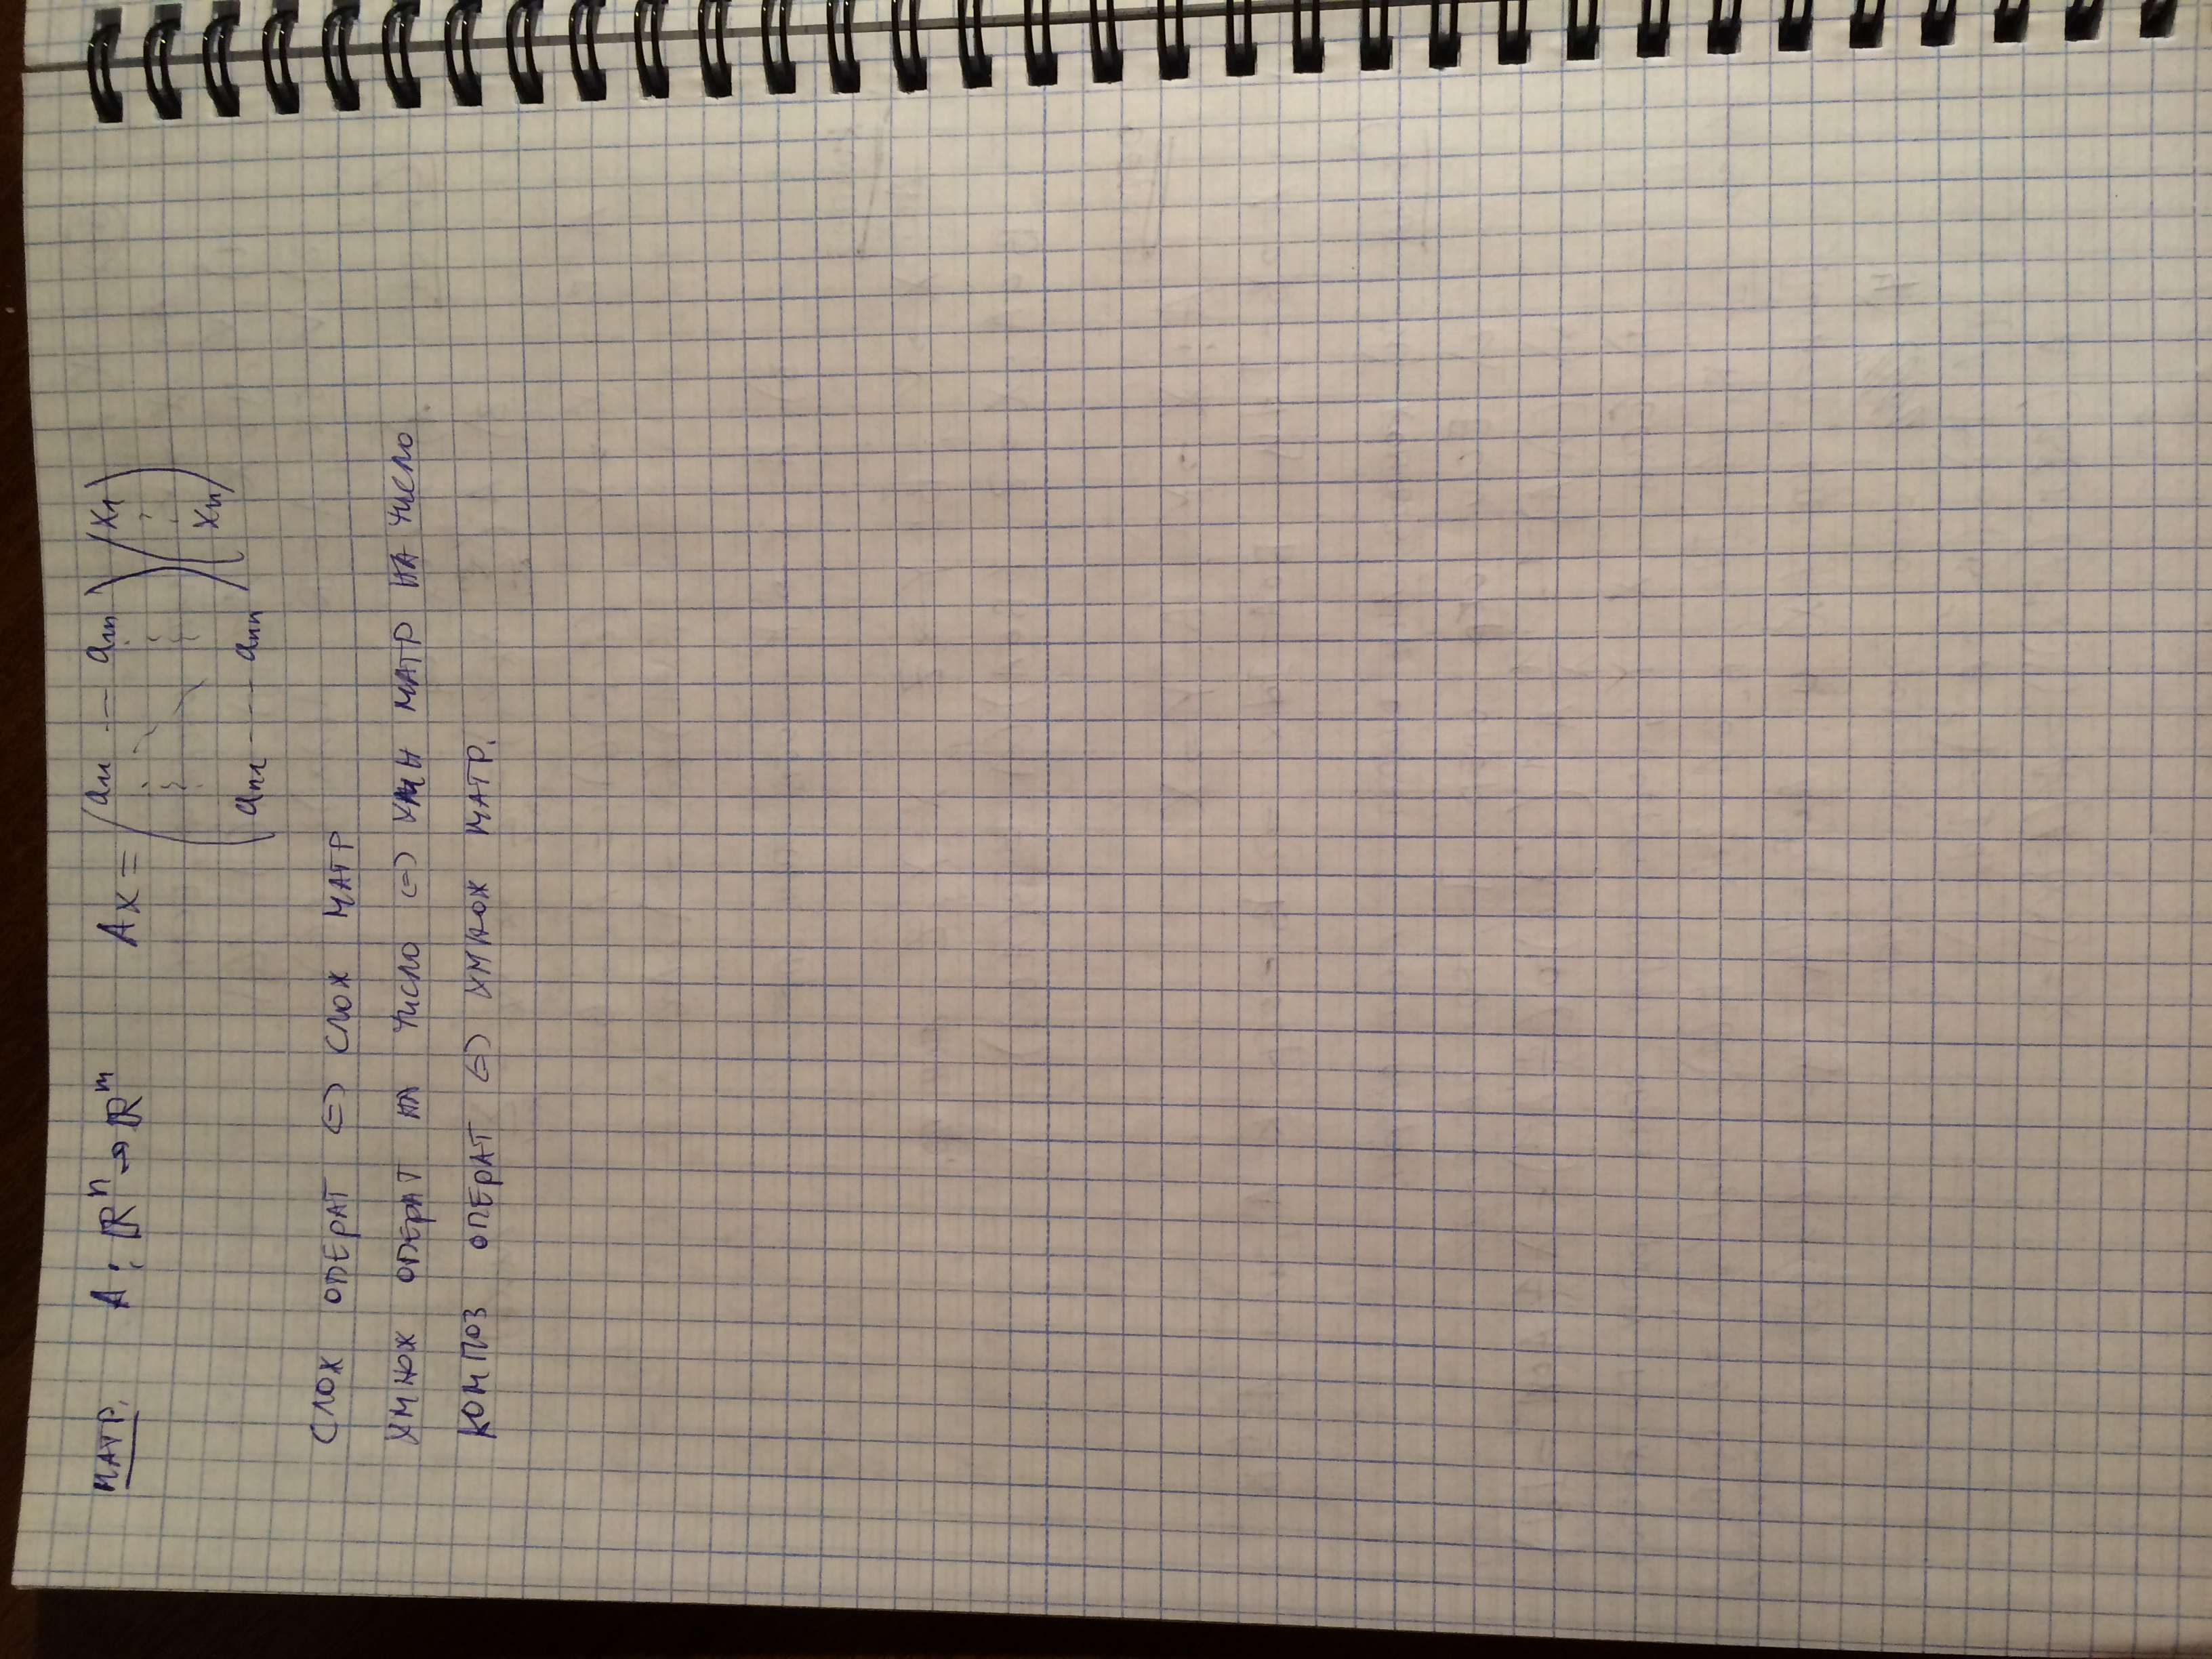 МАТР. A: ℝⁿ → ℝᵐ Ax = (a₁₁ --- a₁ₙ ⋮ ⋱ ⋮ aₙ₁ --- aₙₙ)(x₁ ⋮ xₙ)
СЛОЖ ОПЕРАТ ⇔ СЛОЖ МАТР
УМНОЖ ОПЕРАТ НА ЧИСЛО ⇔ УМН МАТР НА ЧИСЛО
КОМПОЗ ОПЕРАТ ⇔ УМНОЖ МАТР.